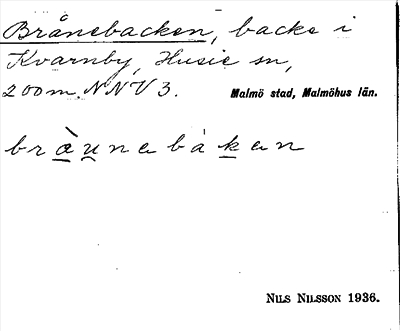 Brånebacken, backe i
Kvarnby, Husie sn,
200 m. NNV 3. Malmö stad, Malmöhus län.
bràunebàken
NILS NILSSON 1936.